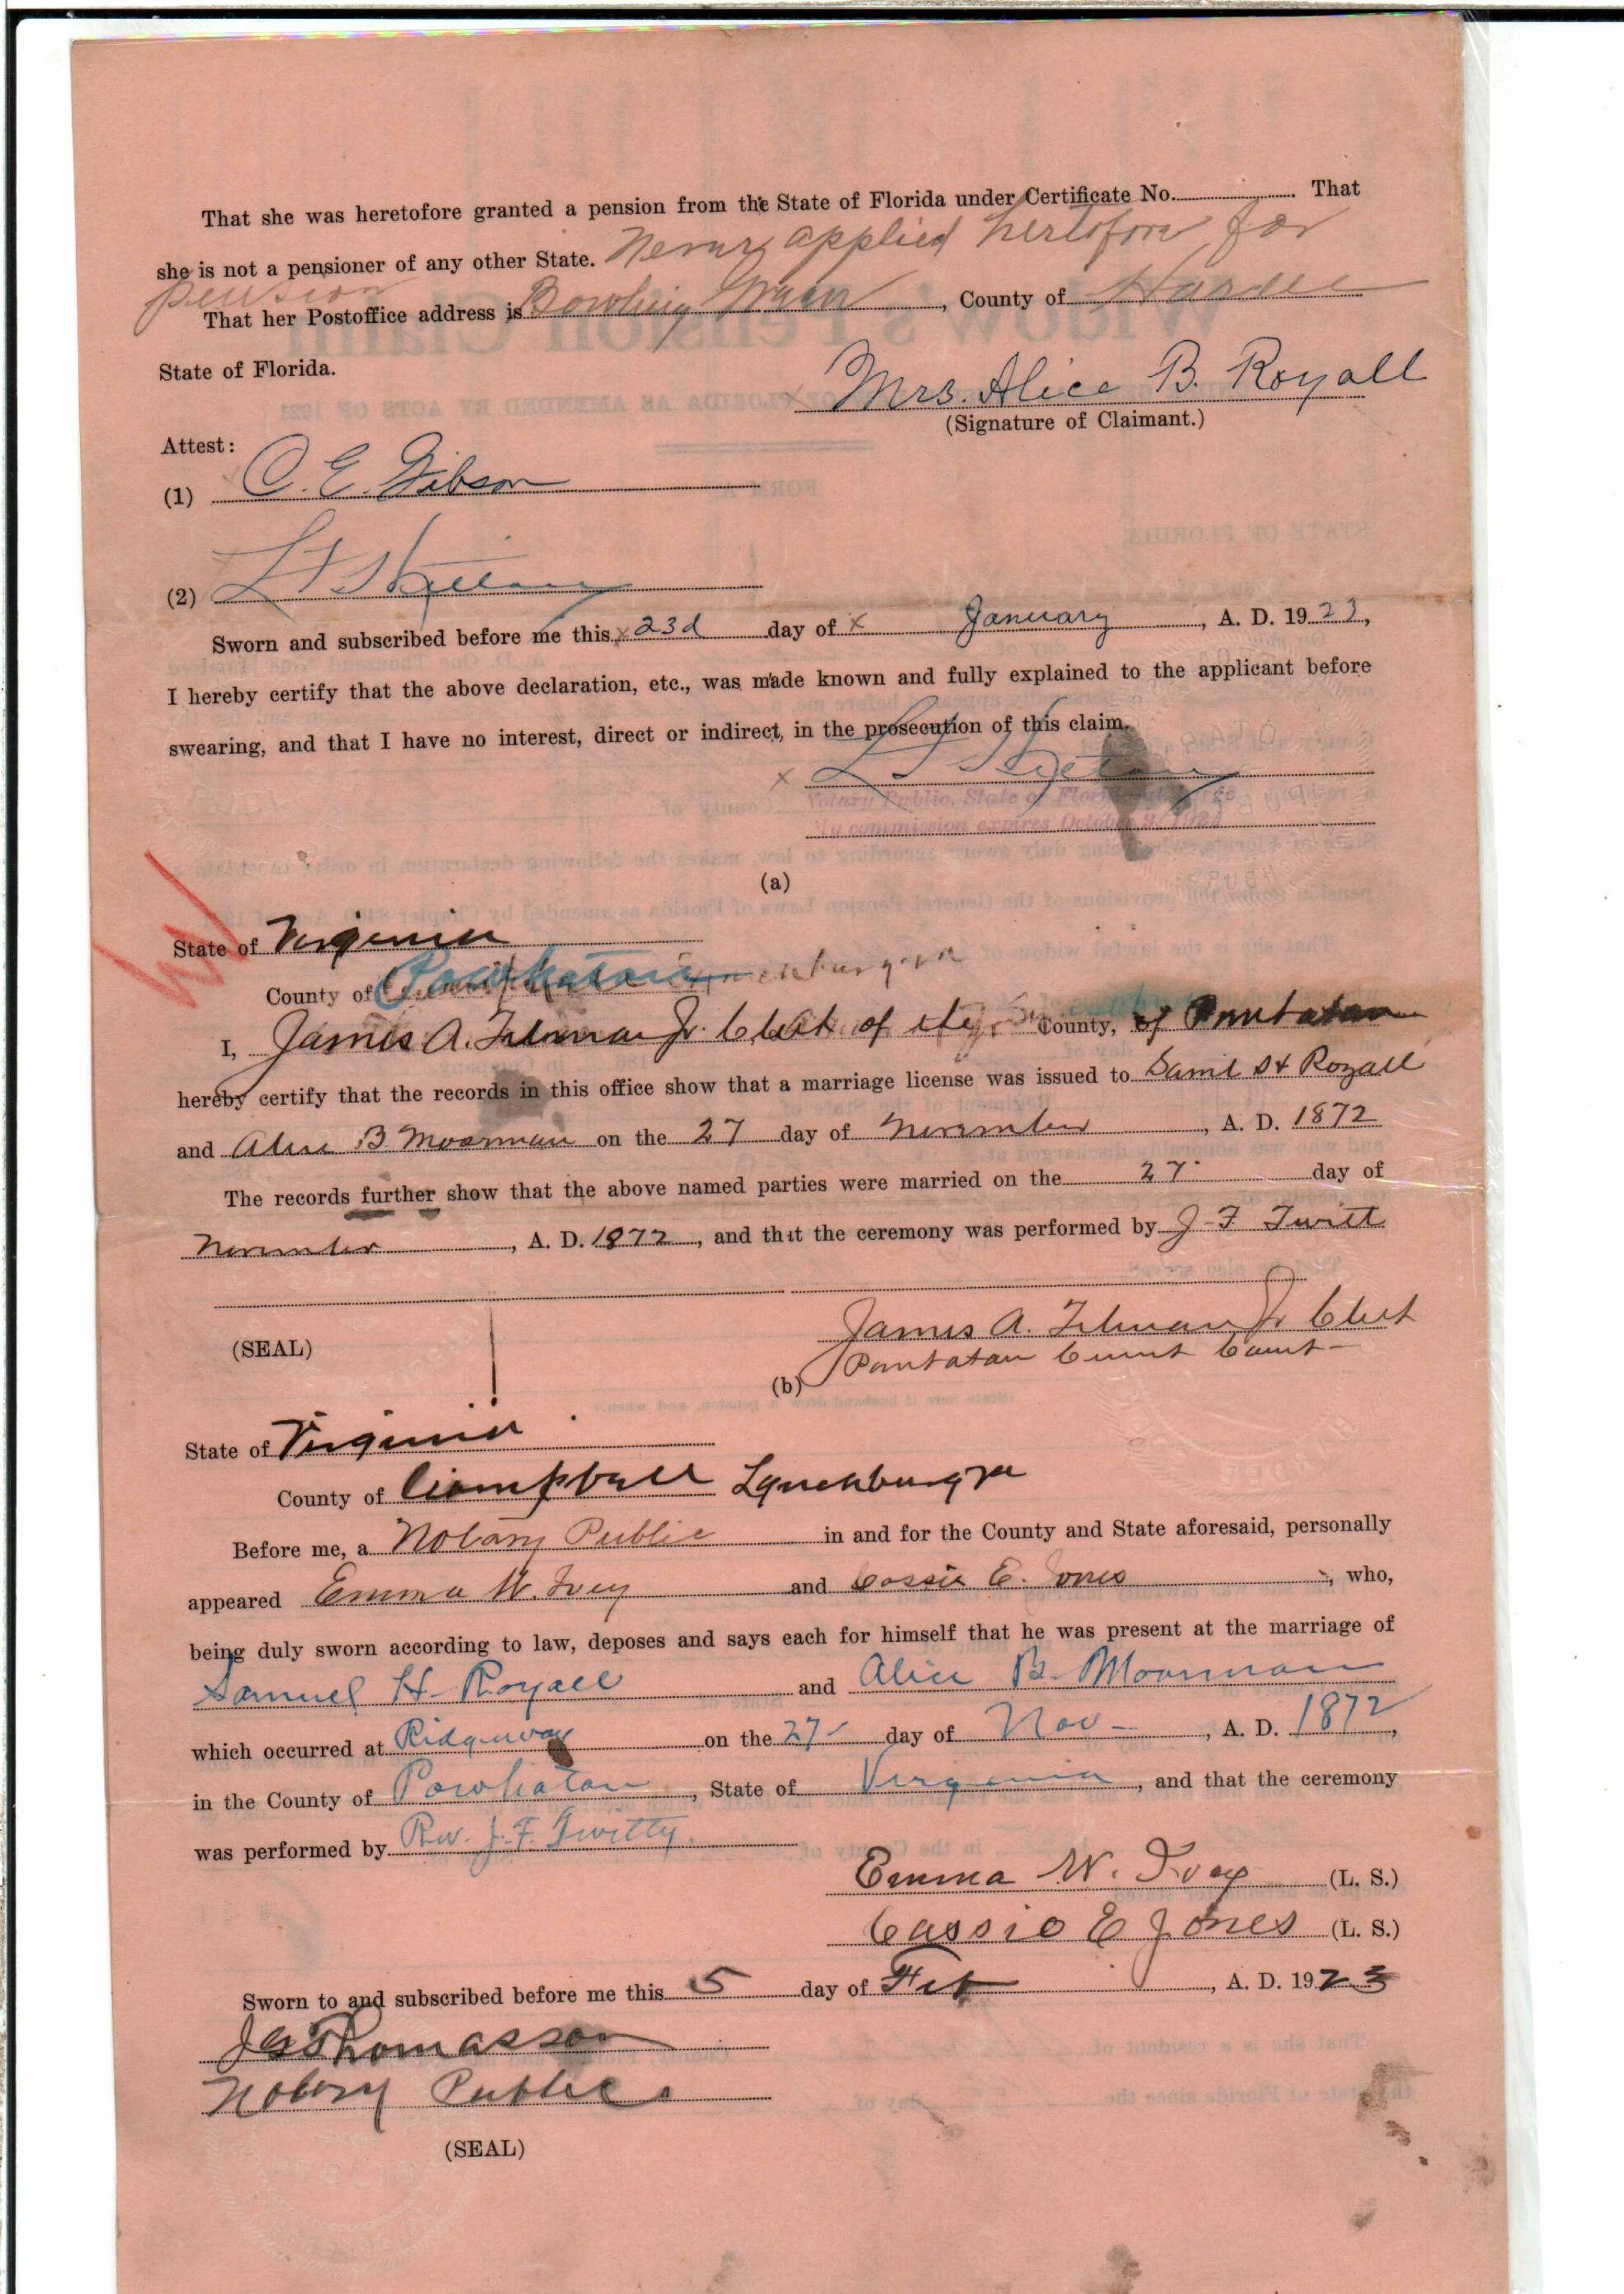 That she was heretofore granted a pension from the State of Florida under Certificate No. That
she is not a pensioner of any other State. Never applied hertofore for
pension
That her Postoffice address is Bowling Green, County of Hardee
State of Florida.
Mrs. Alice B. Royall
(Signature of Claimant.)
Attest:
(1) C. E. Gibson
(2)
Sworn and subscribed before me this x 23d day of x January, A. D. 1923,
I hereby certify that the above declaration, etc., was made known and fully explained to the applicant before
swearing, and that I have no interest, direct or indirect, in the prosecution of this claim.
x
Notary Public, State of Florida
My commission expires October 9, 192
(a)
State of Virginia
County of Powhatan
I, James A. Tilman Jr. Clerk of the County, of Powhatan
hereby certify that the records in this office show that a marriage license was issued to Saml H Royall
and Alice B Moorman on the 27 day of November, A. D. 1872
The records further show that the above named parties were married on the 27 day of
November, A. D. 1872, and that the ceremony was performed by J F Twitt
James A. Tilman Jr Clerk
(SEAL)
Powhatan Court
(b)
State of Virginia
County of Campbell Lynchburg Va
Before me, a Notary Public in and for the County and State aforesaid, personally
appeared Emma W. Ivey and Cassie E. Jones, who,
being duly sworn according to law, deposes and says each for himself that he was present at the marriage of
Samuel H. Royall and Alice B. Moorman
which occurred at Ridgeway on the 27 day of Nov, A. D. 1872,
in the County of Powhatan, State of Virginia, and that the ceremony
was performed by Rev. J. F. Twitty.
Emma W. Ivey (L. S.)
Cassie E Jones (L. S.)
Sworn to and subscribed before me this 5 day of Feb, A. D. 1923
J G Thomasson
Notary Public
(SEAL)